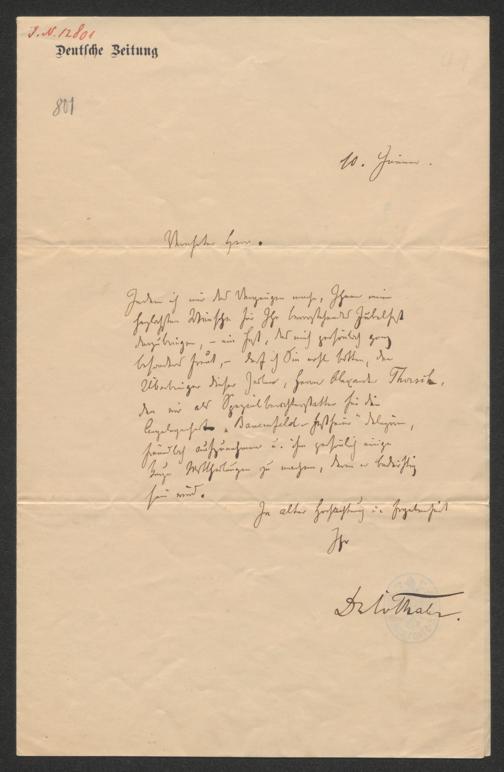 J. N. 12801
Deutsche Zeitung
801
10. Jänner.
Verehrter Herr.
Indem ich mir das Vergnügen mache, Ihnen meine
herzlichsten Wünsche für Ihr bevorstehendes Jubelfest
darzubringen, – ein Fest, das mich persönlich ganz
besonders freut, – darf ich Sie wohl bitten, den
Überbringer dieser Zeilen, Herrn Alexander
den wir als Spezialberichterstatter für die
Angelegenheit "Bauernfeld-Festfeier"
freundlich aufzunehmen u. ihm gefälligst einige
Mittheilungen zu machen, deren er bedürftig
sein wird.
In alter Hochachtung u. Ergebenheit
Ihr